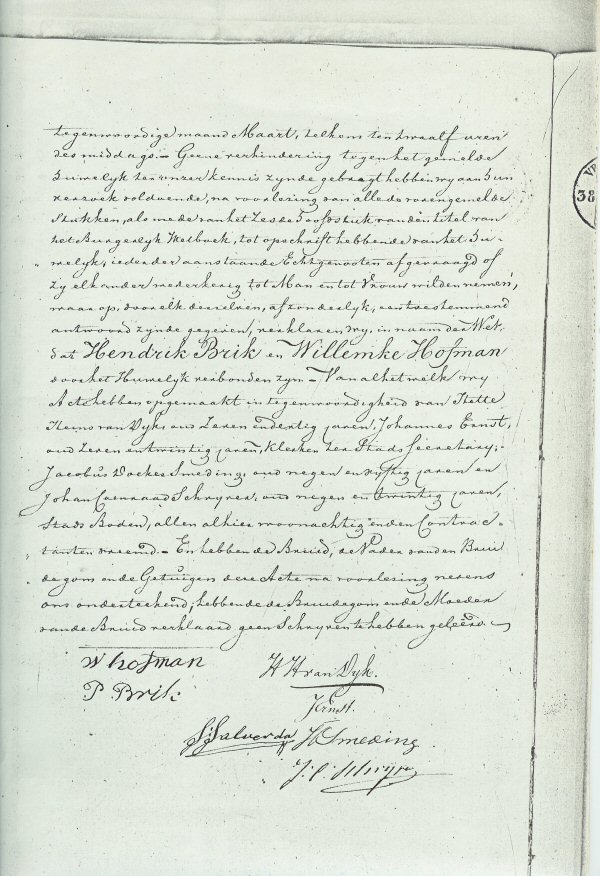 tegenwoordige maand Maart, telkens ten twaalf uren
des middags. — Geene verhindering tegen het gemelde
Huwelyk ter onzer kennis zynde gebragt hebben wy aan hun
verzoek voldoende, na voorlezing van alle de vorengemelde
Stukken, als mede van het Zesde Hoofdstuk van den titel van
het Burgerlyk Wetboek, tot opschrift hebbende van het Hu-
welyk, ieder der aanstaande Echtgenooten afgevraagd of
zy elkander wederkerig tot Man en tot Vrouw wilden nemen,
waar op, door elk derzelven, afzonderlyk, een toestemmend
antwoord zynde gegeven, verklaren wy, in naam der Wet,
dat Hendrik Brik en Willemke Hofman
door het Huwelyk verbonden zyn. — Van al het welk wy
Acte hebben opgemaakt in tegenwoordigheid van
Heins van Dyk, oud Zeven en dertig jaren, Johannes Ernst,
oud Zeven en twintig jaren, Klerken ter Stads Secretary,
Jacobus Dockes Smeding, oud negen en vyftig jaren en
Johan Coenraad Schryver, oud negen en twintig jaren,
Stads Boden, allen alhier woonachtig en den Contrac-
tanten vreemd. — En hebben de Bruid, de Vader van den Brui
de gom en de Getuigen deze Acte na voorlezing nevens
ons onderteekend, hebbende de Bruidegom en de Moeder
van de Bruid verklaard geen Schryven te hebben geleerd. —
W hofman
H H van Dyk.
P Brik
J Ernst.
S: Salverda
JD Smeding
J: C: Schryver
38